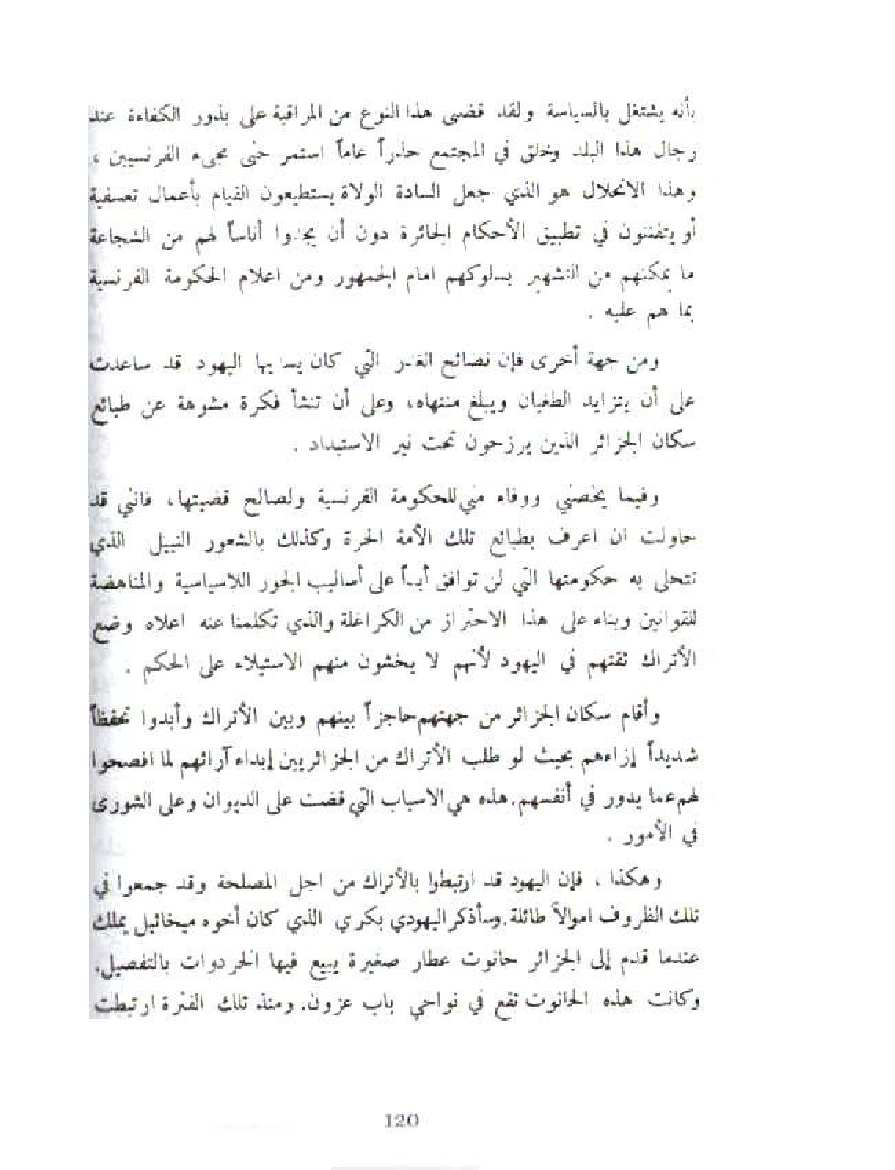 بأنه يشتغل بالسياسة ولقد قضى هذا النوع من المراقبة على بذور الكفاءة عند
رجال هذا البلد وخلق في المجتمع حذراً عاماً استمر حتى مجيء الفرنسيين ،
وهذا الانحلال هو الذي جعل السادة الولاة يستطيعون القيام بأعمال تعسفية
أو يتفننون في تطبيق الأحكام الجائرة دون أن يجدوا أناساً لهم من الشجاعة
ما يمكنهم من التشهير بسلوكهم امام الجمهور ومن اعلام الحكومة الفرنسية
بما هم عليه .
ومن جهة أخرى فإن نصائح الغدر التي كان يسديها اليهود قد ساعدت
على أن يتزايد الطغيان ويبلغ منتهاه، وعلى أن تنشأ فكرة مشوهة عن طبائع
سكان الجزائر الذين يرزحون تحت نير الاستبداد .
وفيما يخصني ووفاء مني للحكومة الفرنسية ولصالح قضيتها، فانني قد
حاولت ان اعرف بطبائع تلك الأمة الحرة وكذلك بالشعور النبيل الذي
تتحلى به حكومتها التي لن توافق أبداً على أساليب الجور اللاسياسية والمناهضة
للقوانين وبناء على هذا الاحتراز من الكراغلة والذي تكلمنا عنه اعلاه وضع
الأتراك ثقتهم في اليهود لأنهم لا يخشون منهم الاستيلاء على الحكم .
وأقام سكان الجزائر من جهتهم حاجزاً بينهم وبين الأتراك وأبدوا تحفظاً
شديداً إزاءهم بحيث لو طلب الأتراك من الجزائريين إبداء آرائهم لما افصحوا
لهم عما يدور في أنفسهم. هذه هي الاسباب التي قضت على الديوان وعلى الشورى
في الأمور .
وهكذا ، فإن اليهود قد ارتبطوا بالأتراك من اجل المصلحة وقد جمعوا في
تلك الظروف اموالاً طائلة. وسأذكر اليهودي بكري الذي كان أخوه ميخائيل يملك
عندما قدم إلى الجزائر حانوت عطار صغيرة يبيع فيها الخردوات بالتفصيل.
وكانت هذه الحانوت تقع في نواحي باب عزون. ومنذ تلك الفترة ارتبطت
120